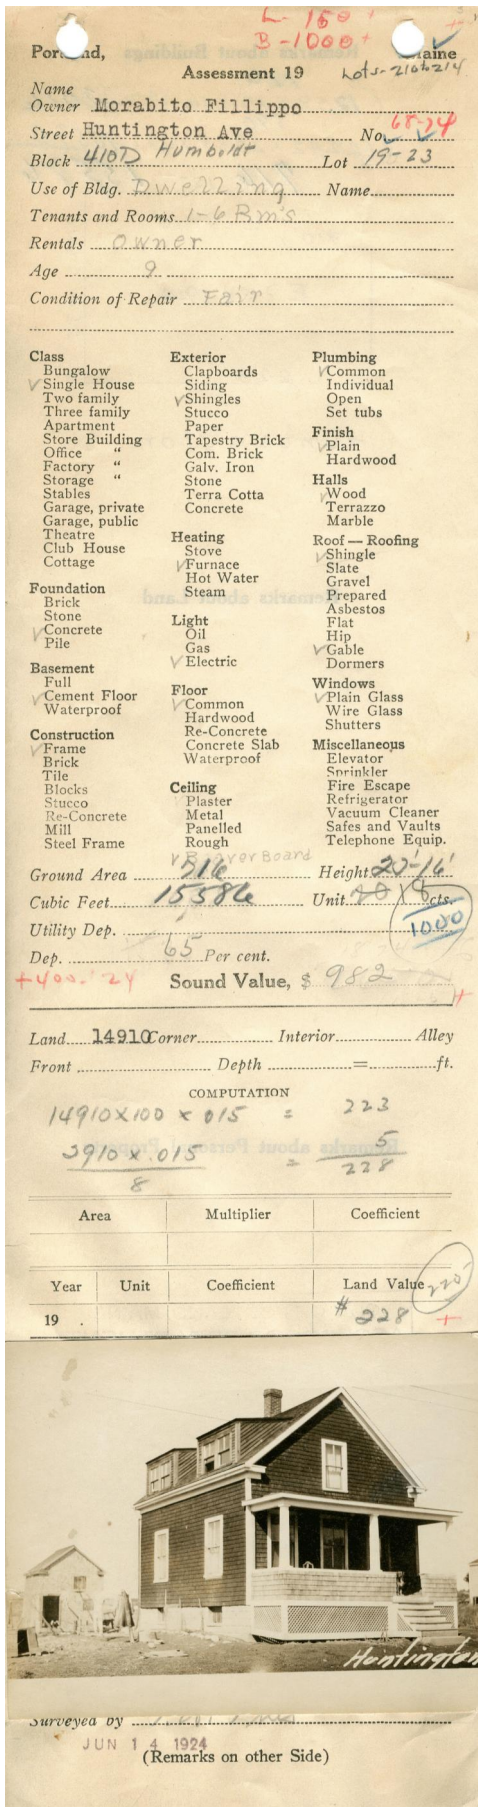 L- 150 +
B-1000 +
Portland, Maine
Assessment 19
Lots-210to214
Name
Owner Morabito Fillippo
Street Huntington Ave No. 68-74
Block 410D Humboldt Lot 19-23
Use of Bldg. Dwelling Name
Tenants and Rooms 1-6 Rm's
Rentals Owner
Age 9
Condition of Repair Fair
Class
Bungalow
✓ Single House
Two family
Three family
Apartment
Store Building
Office "
Factory "
Storage "
Stables
Garage, private
Garage, public
Theatre
Club House
Cottage
Foundation
Brick
Stone
✓ Concrete
Pile
Basement
Full
✓ Cement Floor
Waterproof
Construction
✓ Frame
Brick
Tile
Blocks
Stucco
Re-Concrete
Mill
Steel Frame
Exterior
Clapboards
Siding
✓ Shingles
Stucco
Paper
Tapestry Brick
Com. Brick
Galv. Iron
Stone
Terra Cotta
Concrete
Heating
Stove
✓ Furnace
Hot Water
Steam
Light
Oil
Gas
✓ Electric
Floor
✓ Common
Hardwood
Re-Concrete
Concrete Slab
Waterproof
Ceiling
Plaster
Metal
Panelled
Rough
✓ Beaver Board
Plumbing
✓ Common
Individual
Open
Set tubs
Finish
✓ Plain
Hardwood
Halls
✓ Wood
Terrazzo
Marble
Roof — Roofing
✓ Shingle
Slate
Gravel
Prepared
Asbestos
Flat
Hip
✓ Gable
Dormers
Windows
✓ Plain Glass
Wire Glass
Shutters
Miscellaneous
Elevator
Sprinkler
Fire Escape
Refrigerator
Vacuum Cleaner
Safes and Vaults
Telephone Equip.
Ground Area 716 Height 20'-16'
Cubic Feet 15586 Unit 20 18 cts.
Utility Dep. 1000
Dep. 65 Per cent.
+400.'24 Sound Value, $ 982
Land 14910 Corner Interior Alley
Front Depth = ft.
COMPUTATION
14910x100 x 015 = 223
2910 x .015 = 5
8 228
Area Multiplier Coefficient
Year Unit Coefficient Land Value 220
19 . # 228 +
Huntington
Surveyed by
JUN 14 1924
(Remarks on other Side)